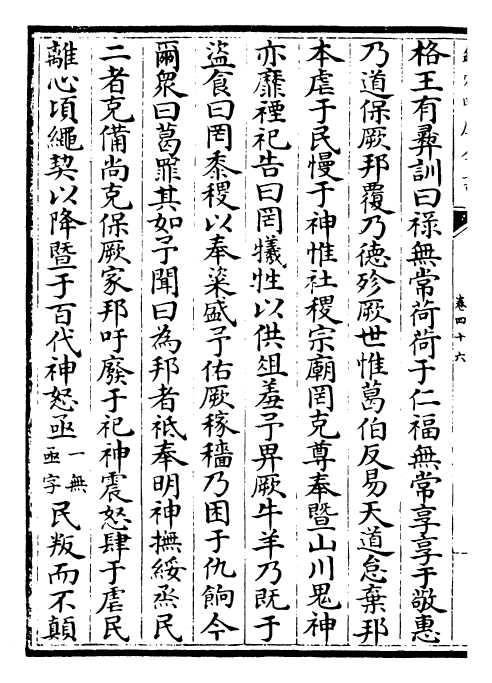 格王有彞訓曰禄無常荷荷于仁福無常享享于敬惠
乃道保厥邦覆乃徳殄厥世惟葛伯反易天道怠棄邦
本虐于民慢于神惟社稷宗廟罔克尊奉暨山川鬼神
亦靡禋祀告曰罔犧牲以供俎羞予畀厥牛羊乃既于
盜食曰罔黍稷以奉粢盛予佑厥稼穡乃困于仇餉今
爾衆曰葛罪其如予聞曰為邦者祗奉明神撫綏烝民
二者克備尚克保厥家邦吁廢于祀神震怒肆于虐民
離心頃繩契以降暨于百代神怒亟一無亟字民叛而不顛
卷四十六